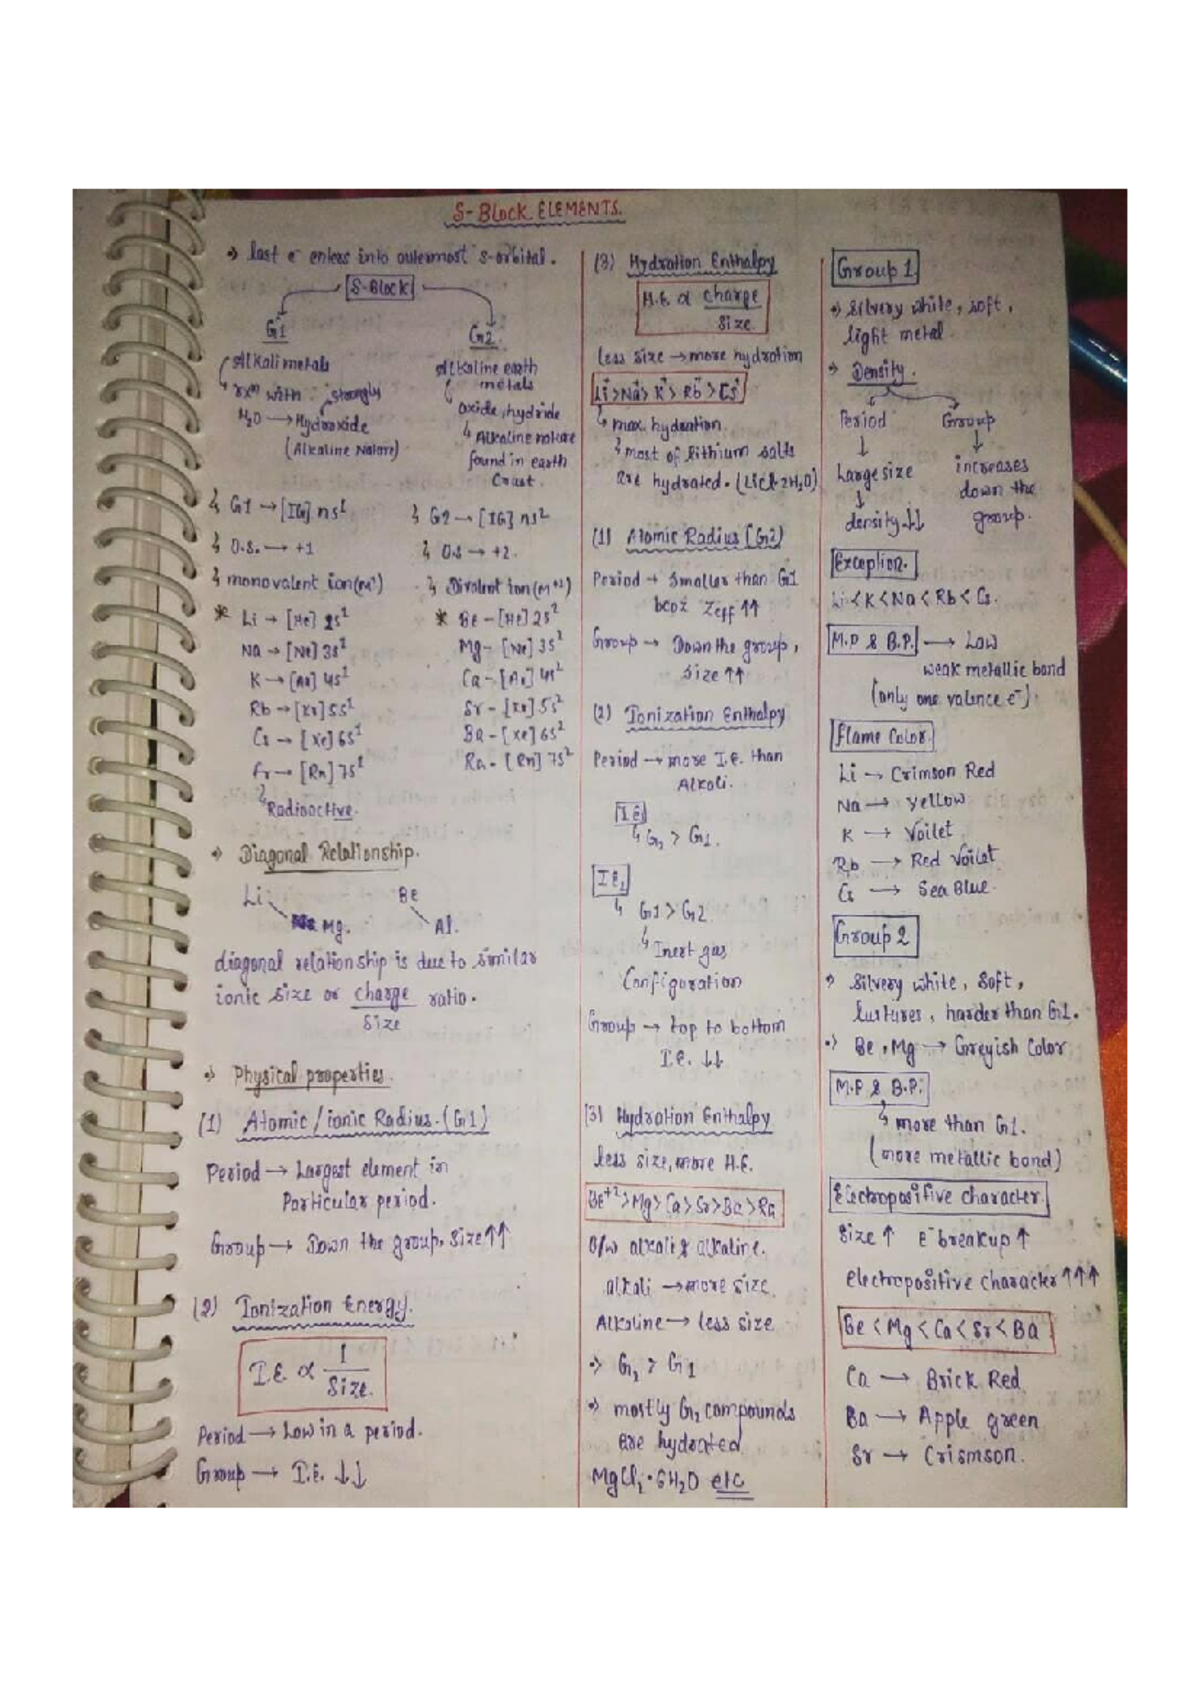 S-BLOCK ELEMENTS.
→ last e⁻ enters into outermost s-orbital.
S-Block
G1
G2
Alkali metals
rxⁿ with strongly
H₂O → Hydroxide
(Alkaline Nature)
Alkaline earth
metals
oxide, hydride
↳ Alkaline nature
found in earth
Crust.
↳ G1 → [IG] ns¹
↳ G2 → [IG] ns²
↳ O.S. → +1
↳ O.S → +2.
↳ monovalent ion (M⁺)
↳ Divalent ion (M⁺²)
* Li → [He] 2s¹
Na → [Ne] 3s¹
K → [Ar] 4s¹
Rb → [Kr] 5s¹
Cs → [Xe] 6s¹
Fr → [Rn] 7s¹
↳ Radioactive.
* Be - [He] 2s²
Mg - [Ne] 3s²
Ca - [Ar] 4s²
Sr - [Kr] 5s²
Ba - [Xe] 6s²
Ra - [Rn] 7s²
→ Diagonal Relationship.
Li
Mg.
Be
Al.
diagonal relationship is due to similar
ionic size or charge ratio.
size
→ Physical properties.
(1) Atomic / ionic Radius. (G1)
Period → Largest element in
Particular period.
Group → Down the group, size ↑↑
(2) Ionization Energy.
I.E. ∝ 1
Size.
Period → Low in a period.
Group → I.E. ↓↓
(3) Hydration Enthalpy
H.E. ∝ charge
size.
less size → more hydration
Li⁺>Na⁺>K⁺>Rb⁺>Cs⁺
↳ max. hydration.
↳ most of lithium salts
are hydrated. (LiCl·2H₂O)
(1) Atomic Radius (G2)
Period → Smaller than G1
bcoz Zeff ↑↑
Group → Down the group,
size ↑↑
(2) Ionization Enthalpy
Period → more I.E. than
Alkali.
I.E₁
↳ G₂ > G₁.
I.E₂
↳ G1 > G2.
↳ Inert gas
Configuration
Group → top to bottom
I.E. ↓↓
(3) Hydration Enthalpy
less size, more H.E.
Be⁺²>Mg>Ca>Sr>Ba>Ra
B/w alkali & alkaline.
alkali → more size.
Alkaline → less size
→ G₂ > G1
→ mostly G₂ compounds
are hydrated
MgCl₂·6H₂O etc
Group 1
→ Silvery white, soft,
light metal.
→ Density.
Period
↓
Large size
↓
density ↓↓
Group
↓
increases
down the
group.
Exception.
Li < K < Na < Rb < Cs.
M.P & B.P. → Low
weak metallic bond
(only one valence e⁻)
Flame Color.
Li → Crimson Red
Na → yellow
K → Voilet
Rb → Red Voilet
Cs → Sea Blue.
Group 2
→ Silvery white, Soft,
lustures, harder than G1.
→ Be, Mg → Greyish Color
M.P & B.P.
↳ more than G1.
(more metallic bond)
Electropositive character.
size ↑ e⁻ breakup ↑
electropositive character ↑↑↑
Be < Mg < Ca < Sr < Ba
Ca → Brick Red
Ba → Apple green
Sr → Crismson.